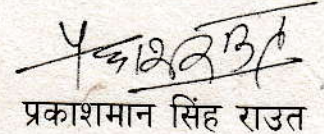 प्रकाशमान सिंह राउत